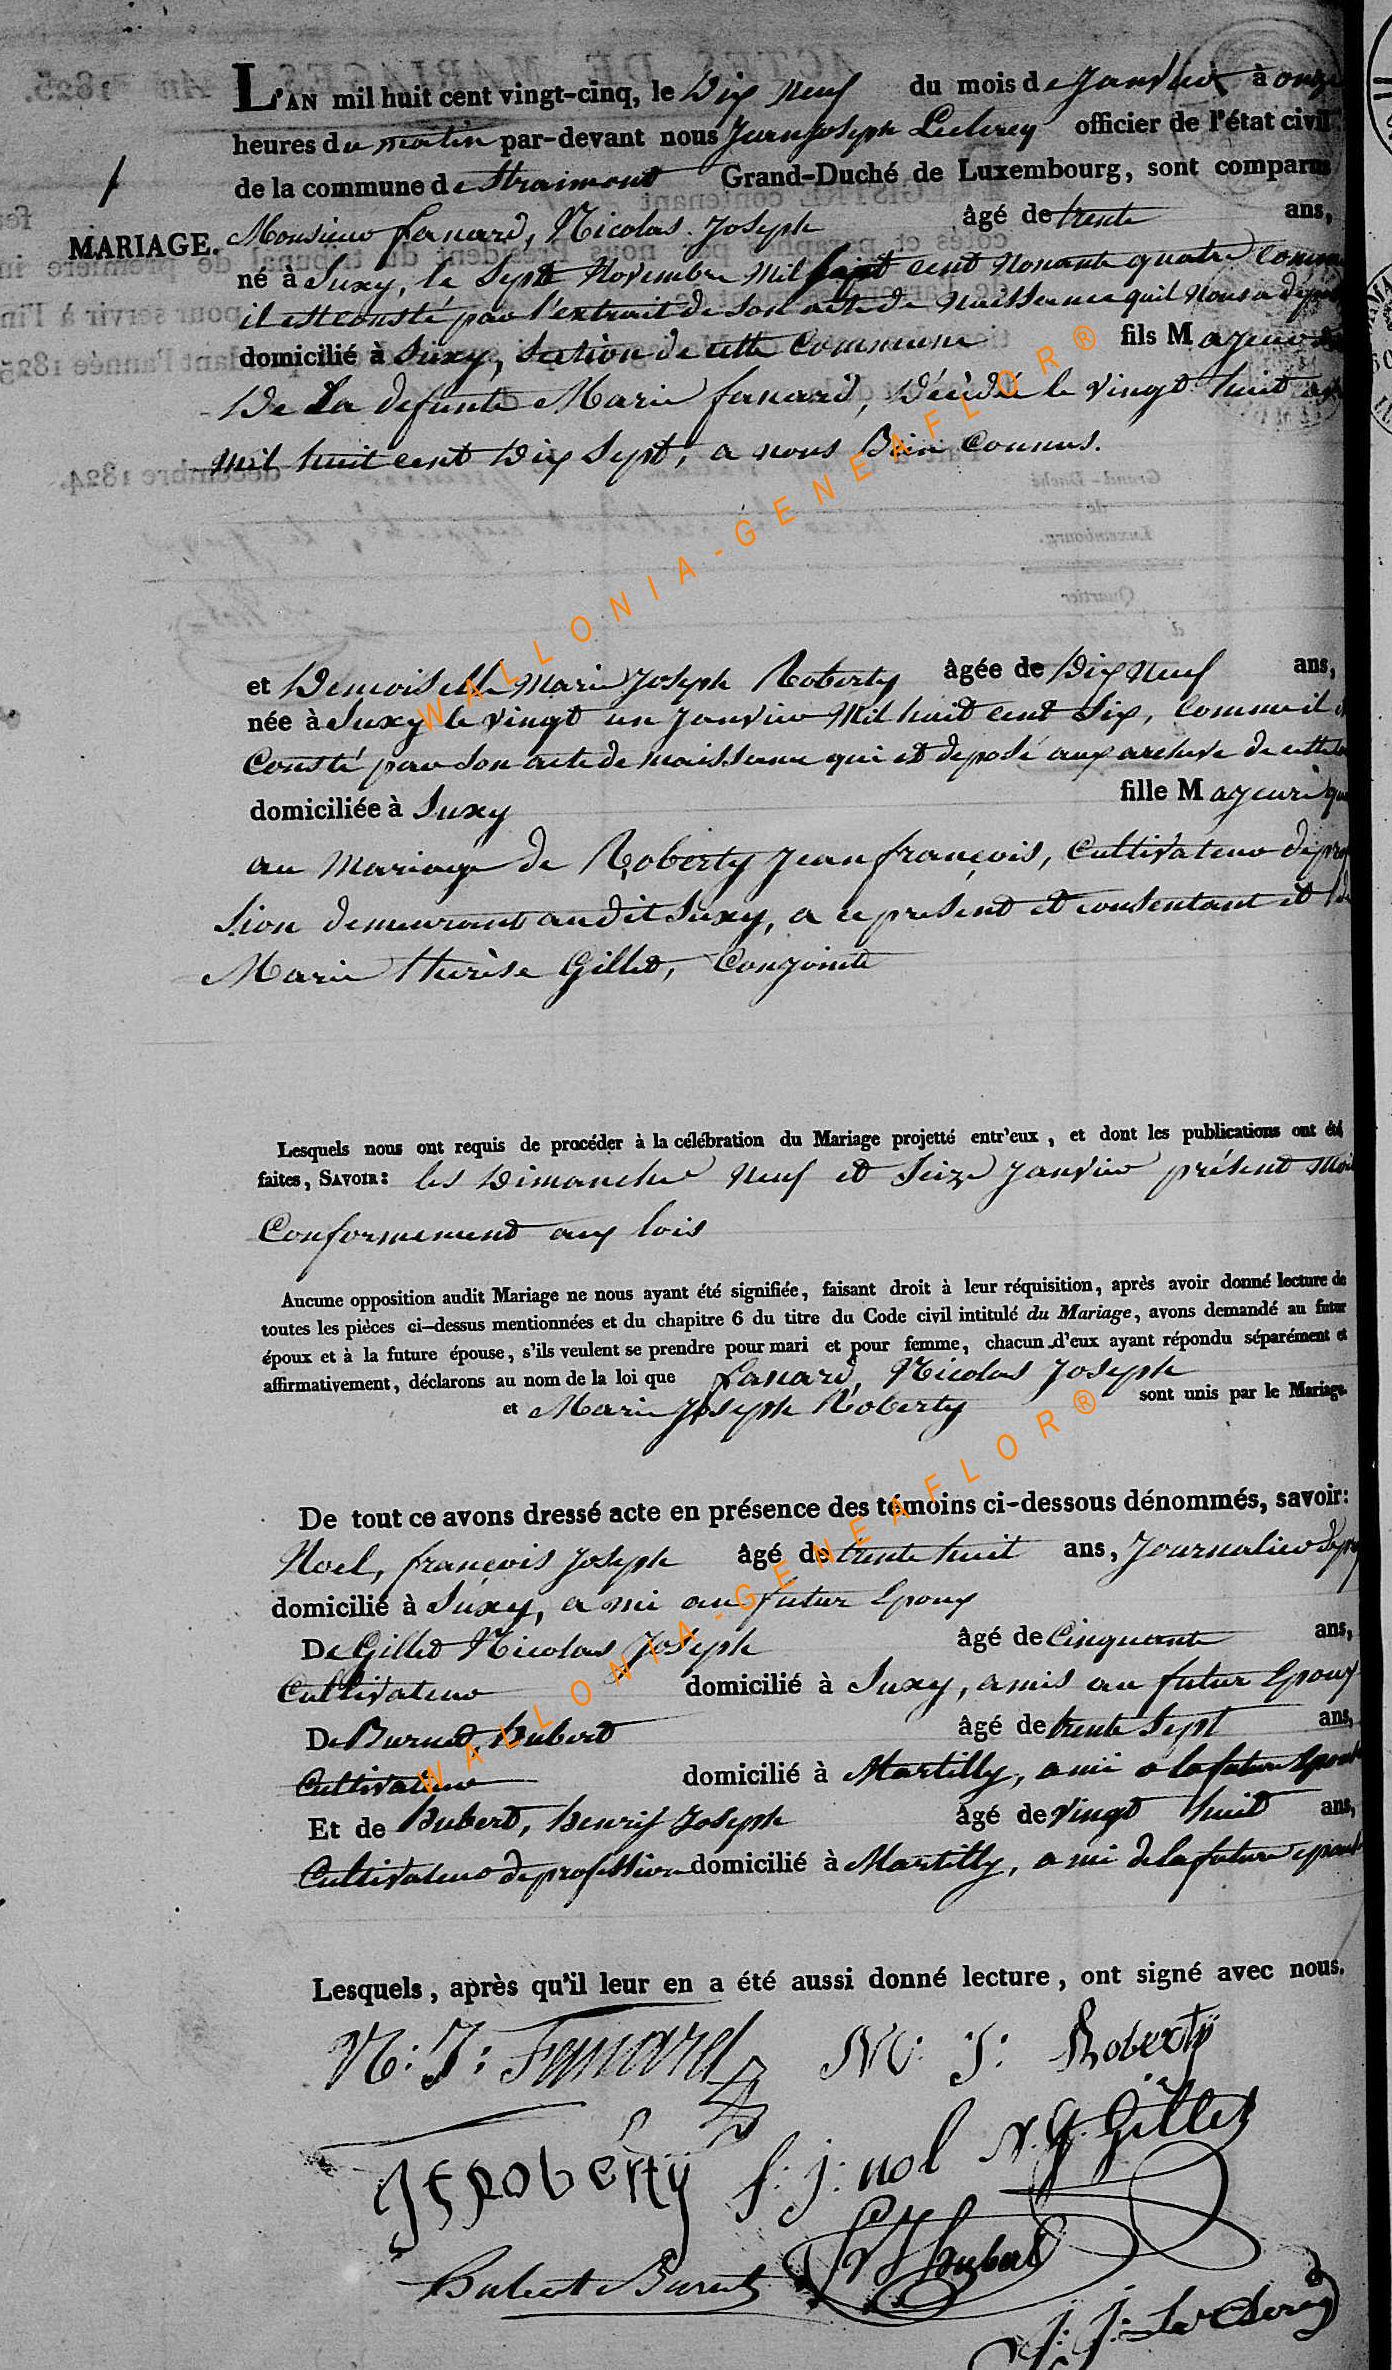 L'AN mil huit cent vingt-cinq, le Dix Neuf du mois de Janvier à onze
heures du matin par-devant nous Jean Joseph Leclercq officier de l'état civil
de la commune de Straimont Grand-Duché de Luxembourg, sont comparus
1
MARIAGE.
Monsieur fanard, Nicolas Joseph âgé de trente ans,
né à Suxy, le Sept Novembre Mil sept cent Nonante quatre comme
il est consté par l'extrait de son acte de Naissance quil Nous a
domicilié à Suxy, Section de cette Commune fils Majeur
De La defunte Marie fanard, Décédé le vingt huit
Mil huit cent Dix Sept, a nous Bien Connus.
et Demoiselle Marie Joseph Roberty âgée de Dix Neuf ans,
née à Suxy le vingt un Janvier Mil huit cent Six, Comme il
Consté par son acte de naissance qui est deposé aux archive de cette
domiciliée à Suxy fille Majeure
au Mariage de Roberty Jean françois, Cultivateur de
sion demeurant audit Suxy, a ce present et consentant et
Marie therèse Gillet, Conjointe
Lesquels nous ont requis de procéder à la célébration du Mariage projetté entr'eux, et dont les publications ont été
faites, SAVOIR: les Dimanche Neuf et Seize Janvier présent Mois
Conformement aux lois
Aucune opposition audit Mariage ne nous ayant été signifiée, faisant droit à leur réquisition, après avoir donné lecture de
toutes les pièces ci-dessus mentionnées et du chapitre 6 du titre du Code civil intitulé du Mariage, avons demandé au futur
époux et à la future épouse, s'ils veulent se prendre pour mari et pour femme, chacun d'eux ayant répondu séparément et
affirmativement, déclarons au nom de la loi que fanard, Nicolas Joseph
et Marie Joseph Roberty sont unis par le Mariage.
De tout ce avons dressé acte en présence des témoins ci-dessous dénommés, savoir:
Noel, françois Joseph âgé de trente huit ans, Journalier
domicilié à Suxy, a mi au futur Epoux
De Gillet Nicolas Joseph âgé de Cinquante ans,
Cultivateur domicilié à Suxy, amis au futur Epoux
De Burnet, hubert âgé de trente Sept ans,
Cultivateur domicilié à Martilly, a mi a la future
Et de hubert, henrij Joseph âgé de vingt huit ans,
Cultivateur de profession domicilié à Martilly, a mi de la future
Lesquels, après qu'il leur en a été aussi donné lecture, ont signé avec nous.
N: J: Fanard M: J: Roberty
JF Roberty f: j: nol N. J. Gillet
hubert Burnet hubert
J: J: Le Clercq
WALLONIA-GENEAFLOR®
WALLONIA-GENEAFLOR®